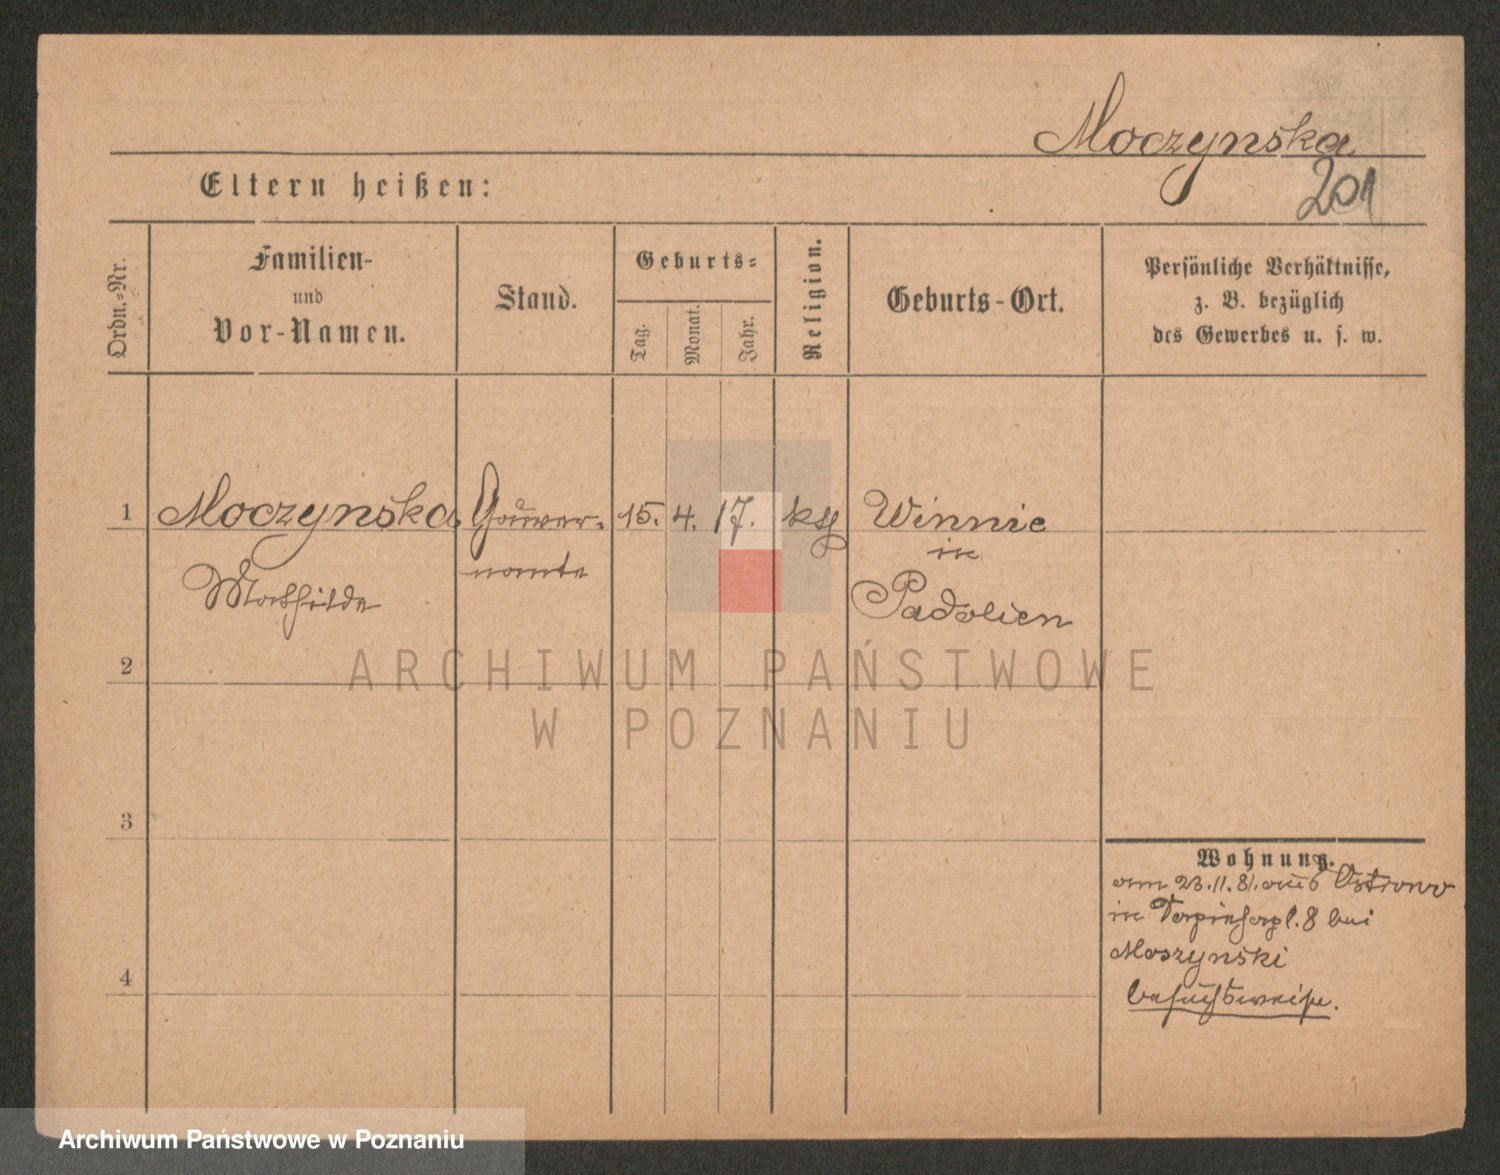 Moczynska
201
Eltern heißen:
Ordn.-Nr.
Familien-
und
Vor-Namen.
Stand.
Geburts-
Tag.
Monat.
Jahr.
Religion.
Geburts-Ort.
Persönliche Verhältnisse,
z. B. bezüglich
des Gewerbes u. s. w.
1 Moczynska, Gouver- 15. 4. 17. kth Winnie
Mathilde nante in
Padolien
2
ARCHIWUM PAŃSTWOWE
W POZNANIU
3
4
Wohnung.
am 23.11.81. aus Ostrowo
in 8 bei
Moszynski
besuchsweise.
Archiwum Państwowe w Poznaniu